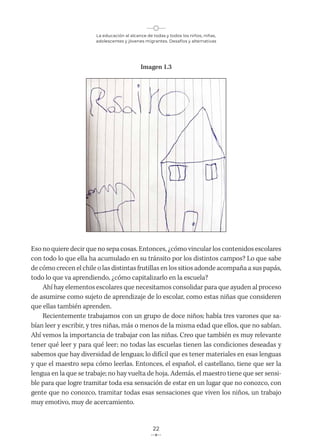 La educación al alcance de todas y todos los niños, niñas,
adolescentes y jóvenes migrantes. Desafíos y alternativas
Imagen 1.3
Rosairo
Eso no quiere decir que no sepa cosas. Entonces, ¿cómo vincular los contenidos escolares
con todo lo que ella ha acumulado en su tránsito por los distintos campos? Lo que sabe
de cómo crecen el chile o las distintas frutillas en los sitios adonde acompaña a sus papás,
todo lo que va aprendiendo, ¿cómo capitalizarlo en la escuela?
Ahí hay elementos escolares que necesitamos consolidar para que ayuden al proceso
de asumirse como sujeto de aprendizaje de lo escolar, como estas niñas que consideren
que ellas también aprenden.
Recientemente trabajamos con un grupo de doce niños; había tres varones que sa-
bían leer y escribir, y tres niñas, más o menos de la misma edad que ellos, que no sabían.
Ahí vemos la importancia de trabajar con las niñas. Creo que también es muy relevante
tener qué leer y para qué leer; no todas las escuelas tienen las condiciones deseadas y
sabemos que hay diversidad de lenguas; lo difícil que es tener materiales en esas lenguas
y que el maestro sepa cómo leerlas. Entonces, el español, el castellano, tiene que ser la
lengua en la que se trabaje; no hay vuelta de hoja. Además, el maestro tiene que ser sensi-
ble para que logre tramitar toda esa sensación de estar en un lugar que no conozco, con
gente que no conozco, tramitar todas esas sensaciones que viven los niños, un trabajo
muy emotivo, muy de acercamiento.
22